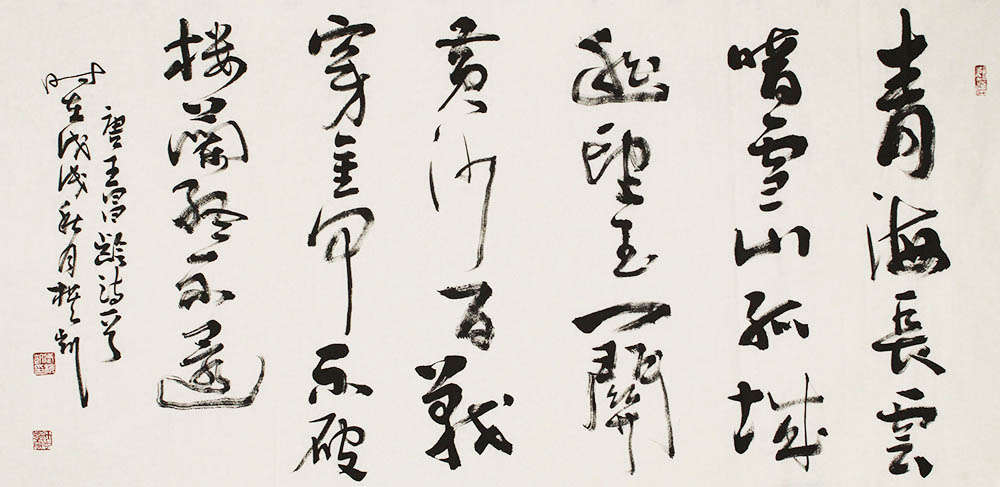 青海長雲
暗雪山孤城
遙望玉門關
黄沙百戰
穿金甲不破
楼蘭終不還
唐王昌齡詩
时在戊戌秋月